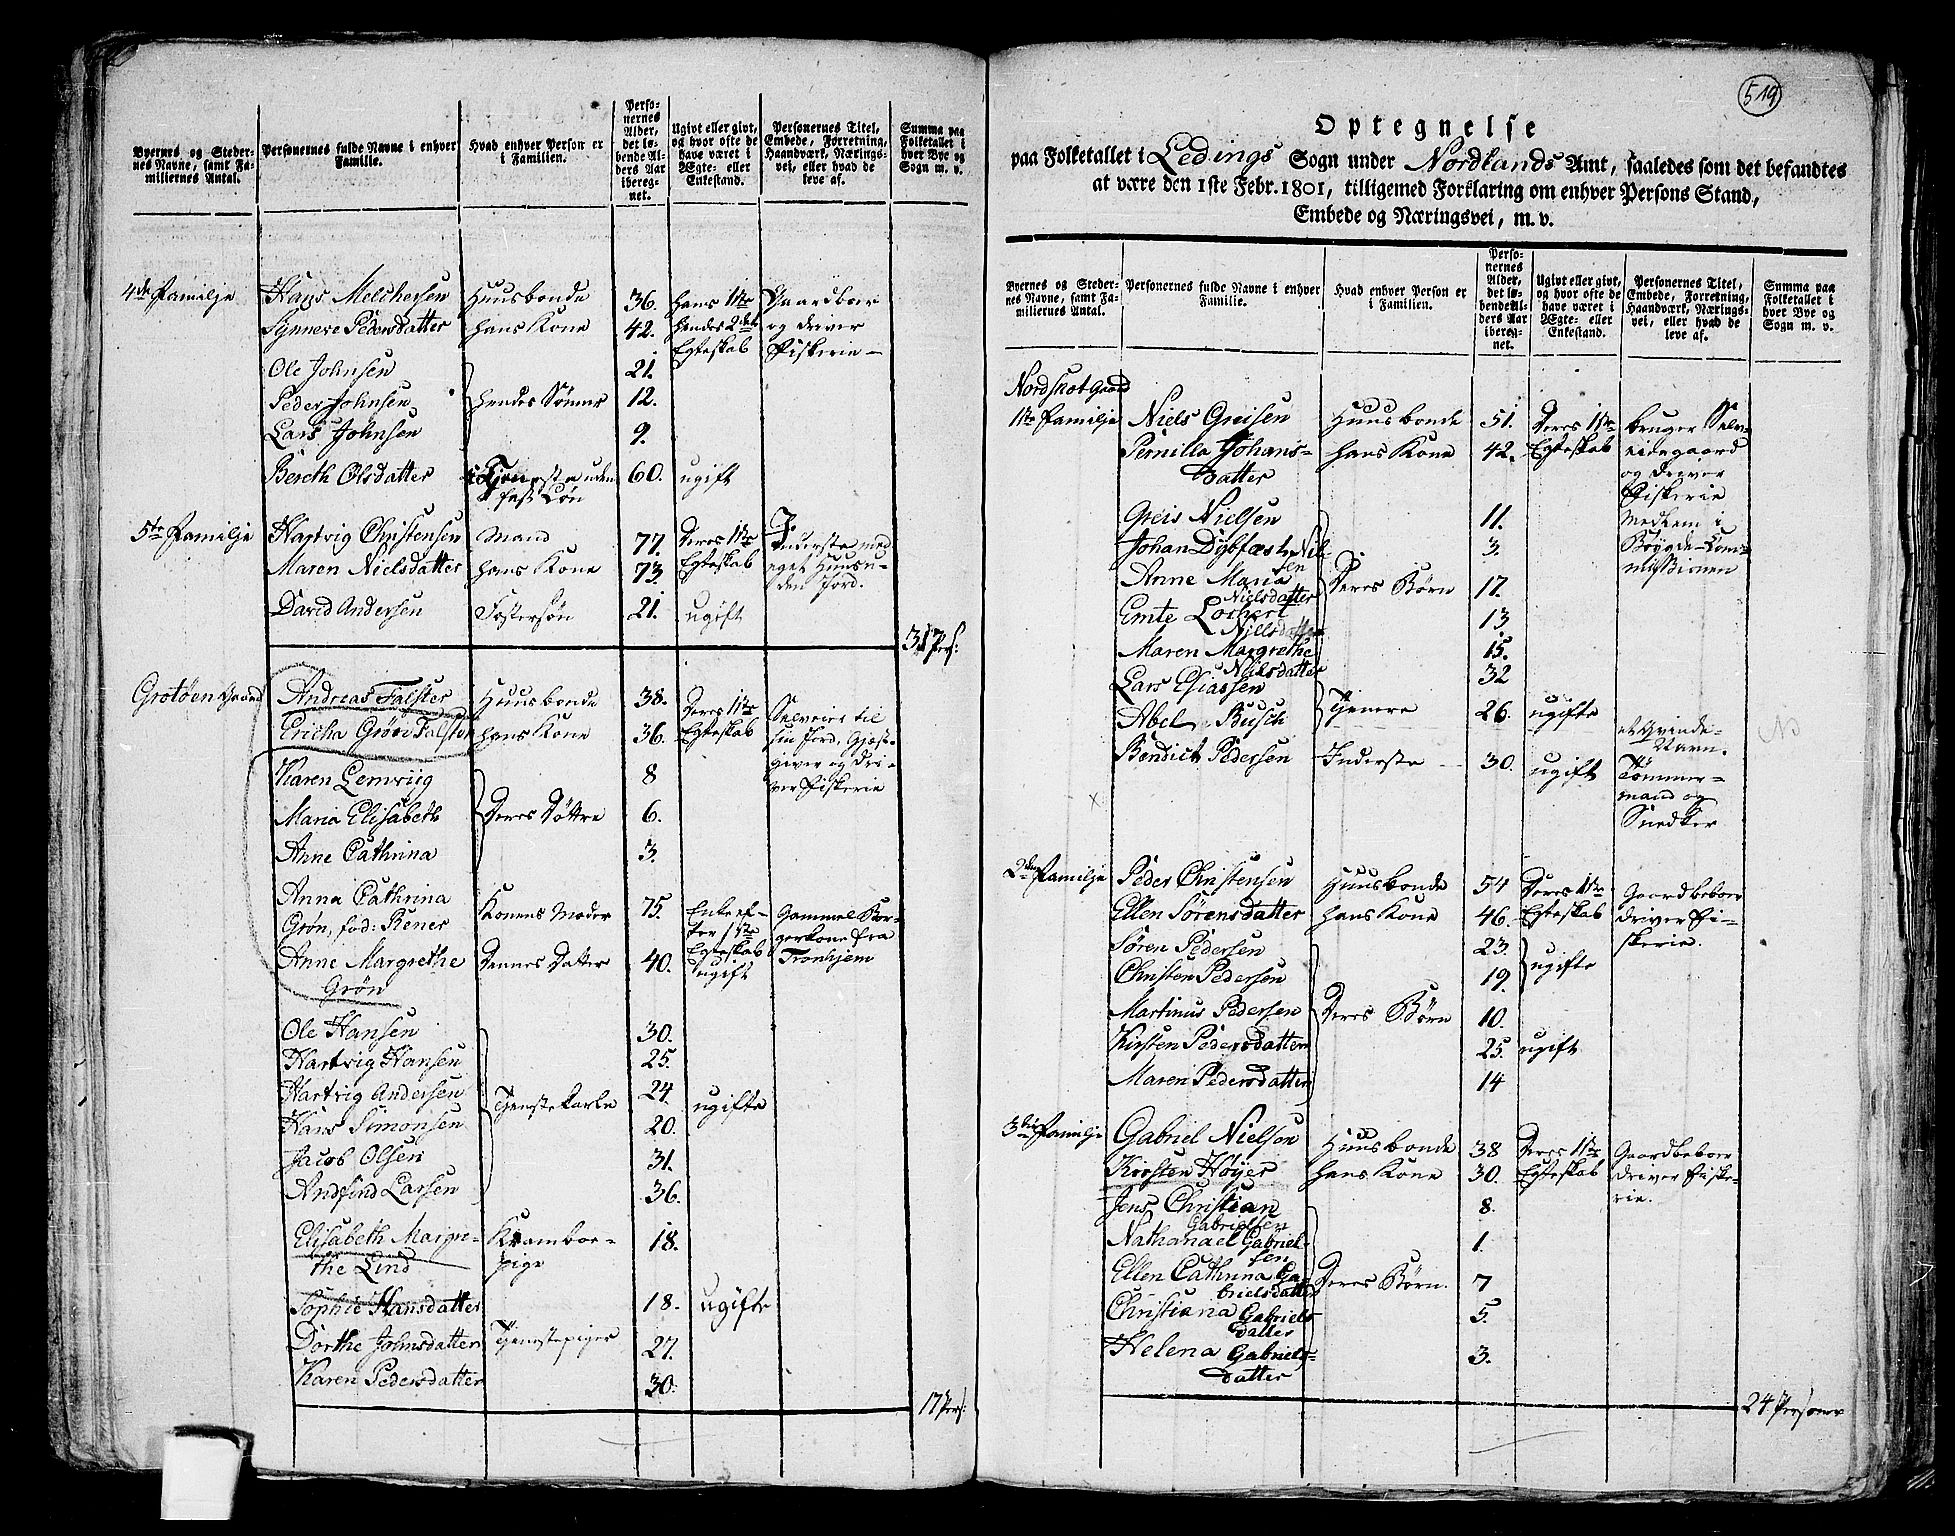 Byernes og Steder-
nes Navne, samt Fa-
miliernes Antal.
Personernes fulde Navne i enhver
Familie.
Hvad enhver Person er
i Familien.
Perso-
nernes
Alder,
det lø-
bende Al-
ders Aar
iberег-
net.
Ugivt eller givt,
og hvor ofte de
have været i
Ægte- eller
Enkestand.
Personernes Titel,
Embede, Forretning,
Haandværk, Nærings-
vei, eller hvad de
leve af.
Summa paa
Folketallet i
hver Bye og
Sogn m. v.
4de Familje Hans Melchersen Huusbonde 36. hans 1ste Gaardboer
Synneve Pedersdatter hans Kone 42. hendes 2det og driver
Egteskab Fiskerie
Ole Johnsen 21.
Peder Johnsen hendes Sønner 12.
Lars Johnsen 9.
Bereth Olsdatter Tjeneste uden 60. ugift
fast Løn
5te Familje Hartvig Christensen Mand 77. Deres 1ste Inderste med
Maren Nielsdatter hans Kone 73. Egteskab eget Huus u-
den Jord.
David Andersen Fostersøn 21. ugift
37 Pers:
Grotøen Gaard Andreas Falster Huusbonde 38. Deres 1ste Selveier til
Ericha Grøn Falster hans Kone 36. Egteskab sin Jord, Gjæst-
giver og dri-
ver Fiskerie
Karen Lemvig 8
Maria Elisabeth Deres Døttre 6.
Anne Cathrina 3.
Anna Cathrina
Grøn, fød: Rener Konens Moder 75. Enke ef- Gammel Bor-
ter 1ste gerkone fra
Egteskab Tronhjem
Anne Margrethe Dennes Datter 40. ugift
Grøn
Ole Hansen 30.
Hartvig Hansen 25.
Hartvig Andersen 24.
Hans Simonsen Tjenstekarle 20. ugifte
Jacob Olsen 31.
Andfind Larsen 36.
Elisabeth Margre- Kramboe- 18.
the Lind pige
Sophie Hansdatter 18. ugifte
Dorthe Johnsdatter Tjenstepiger 27.
Karen Pedersdatter 30.
17 Pers:
519
Optegnelse
paa Folketallet i Ledings Sogn under Nordlands Amt, saaledes som det befandtes
at være den 1ste Febr. 1801, tilligemed Forklaring om enhver Persons Stand,
Embede og Næringsvei, m. v.
Byernes og Steder-
nes Navne, samt Fa-
miliernes Antal.
Personernes fulde Navne i enhver
Familie.
Hvad enhver Person er
i Familien.
Perso-
nernes
Alder,
det lø-
bende Al-
ders Aar
iberег-
net.
Ugivt eller givt,
og hvor ofte de
have været i
Ægte- eller
Enkestand.
Personernes Titel,
Embede, Forretning,
Haandværk, Nærings-
vei, eller hvad de
leve af.
Summa paa
Folketallet i
hver Bye og
Sogn m. v.
Nordskot Gaard
1ste Familje Niels Greisen Huusbonde 51. Deres 1ste bruger Selv-
Pernilla Johans- hans Kone 42. Egteskab eidegaard
datter og driver
Fiskerie
Greis Nielsen 11. Medlem i
Johan Dybfæst Niel- 3. Bøygde-Com-
sen missionen
Anne Maria Deres Børn 17.
Nielsdatter
Emte Lorhert 13
Nielsdatter
Maren Margrethe 15.
Nielsdatter
Lars Eliassen 32
Abel Busch Tjenere 26. ugifte et Qvinde-
Navn. No
Bendict Pedersen Inderste 30. ugift Tømmer-
mand og
Snedker
x
2den Familje Peder Christensen Huusbonde 54 Deres 1ste Gaardbeboer
Ellen Sørensdatter hans Kone 46. Egteskab driver Fi-
skerie.
Søren Pedersen 23.
Christen Pedersen 19. ugifte
Martinus Pedersen Deres Børn 10.
Kirsten Pedersdatter 25. ugift
Maren Pedersdatter 14
3die Familje Gabriel Nielsen Huusbonde 38 Deres 1ste Gaardbeboer
Kirsten Høyer hans Kone 30. Egteskab driver Fiske-
rie.
Jens Christian 8.
Gabrielsen
Nathanael Gabriel- 1.
sen
Ellen Cathrina Ga- Deres Børn. 7
brielsdatter
Christiana Gabriels 5.
datter
Helena Gabriels- 3.
datter
24 Personer